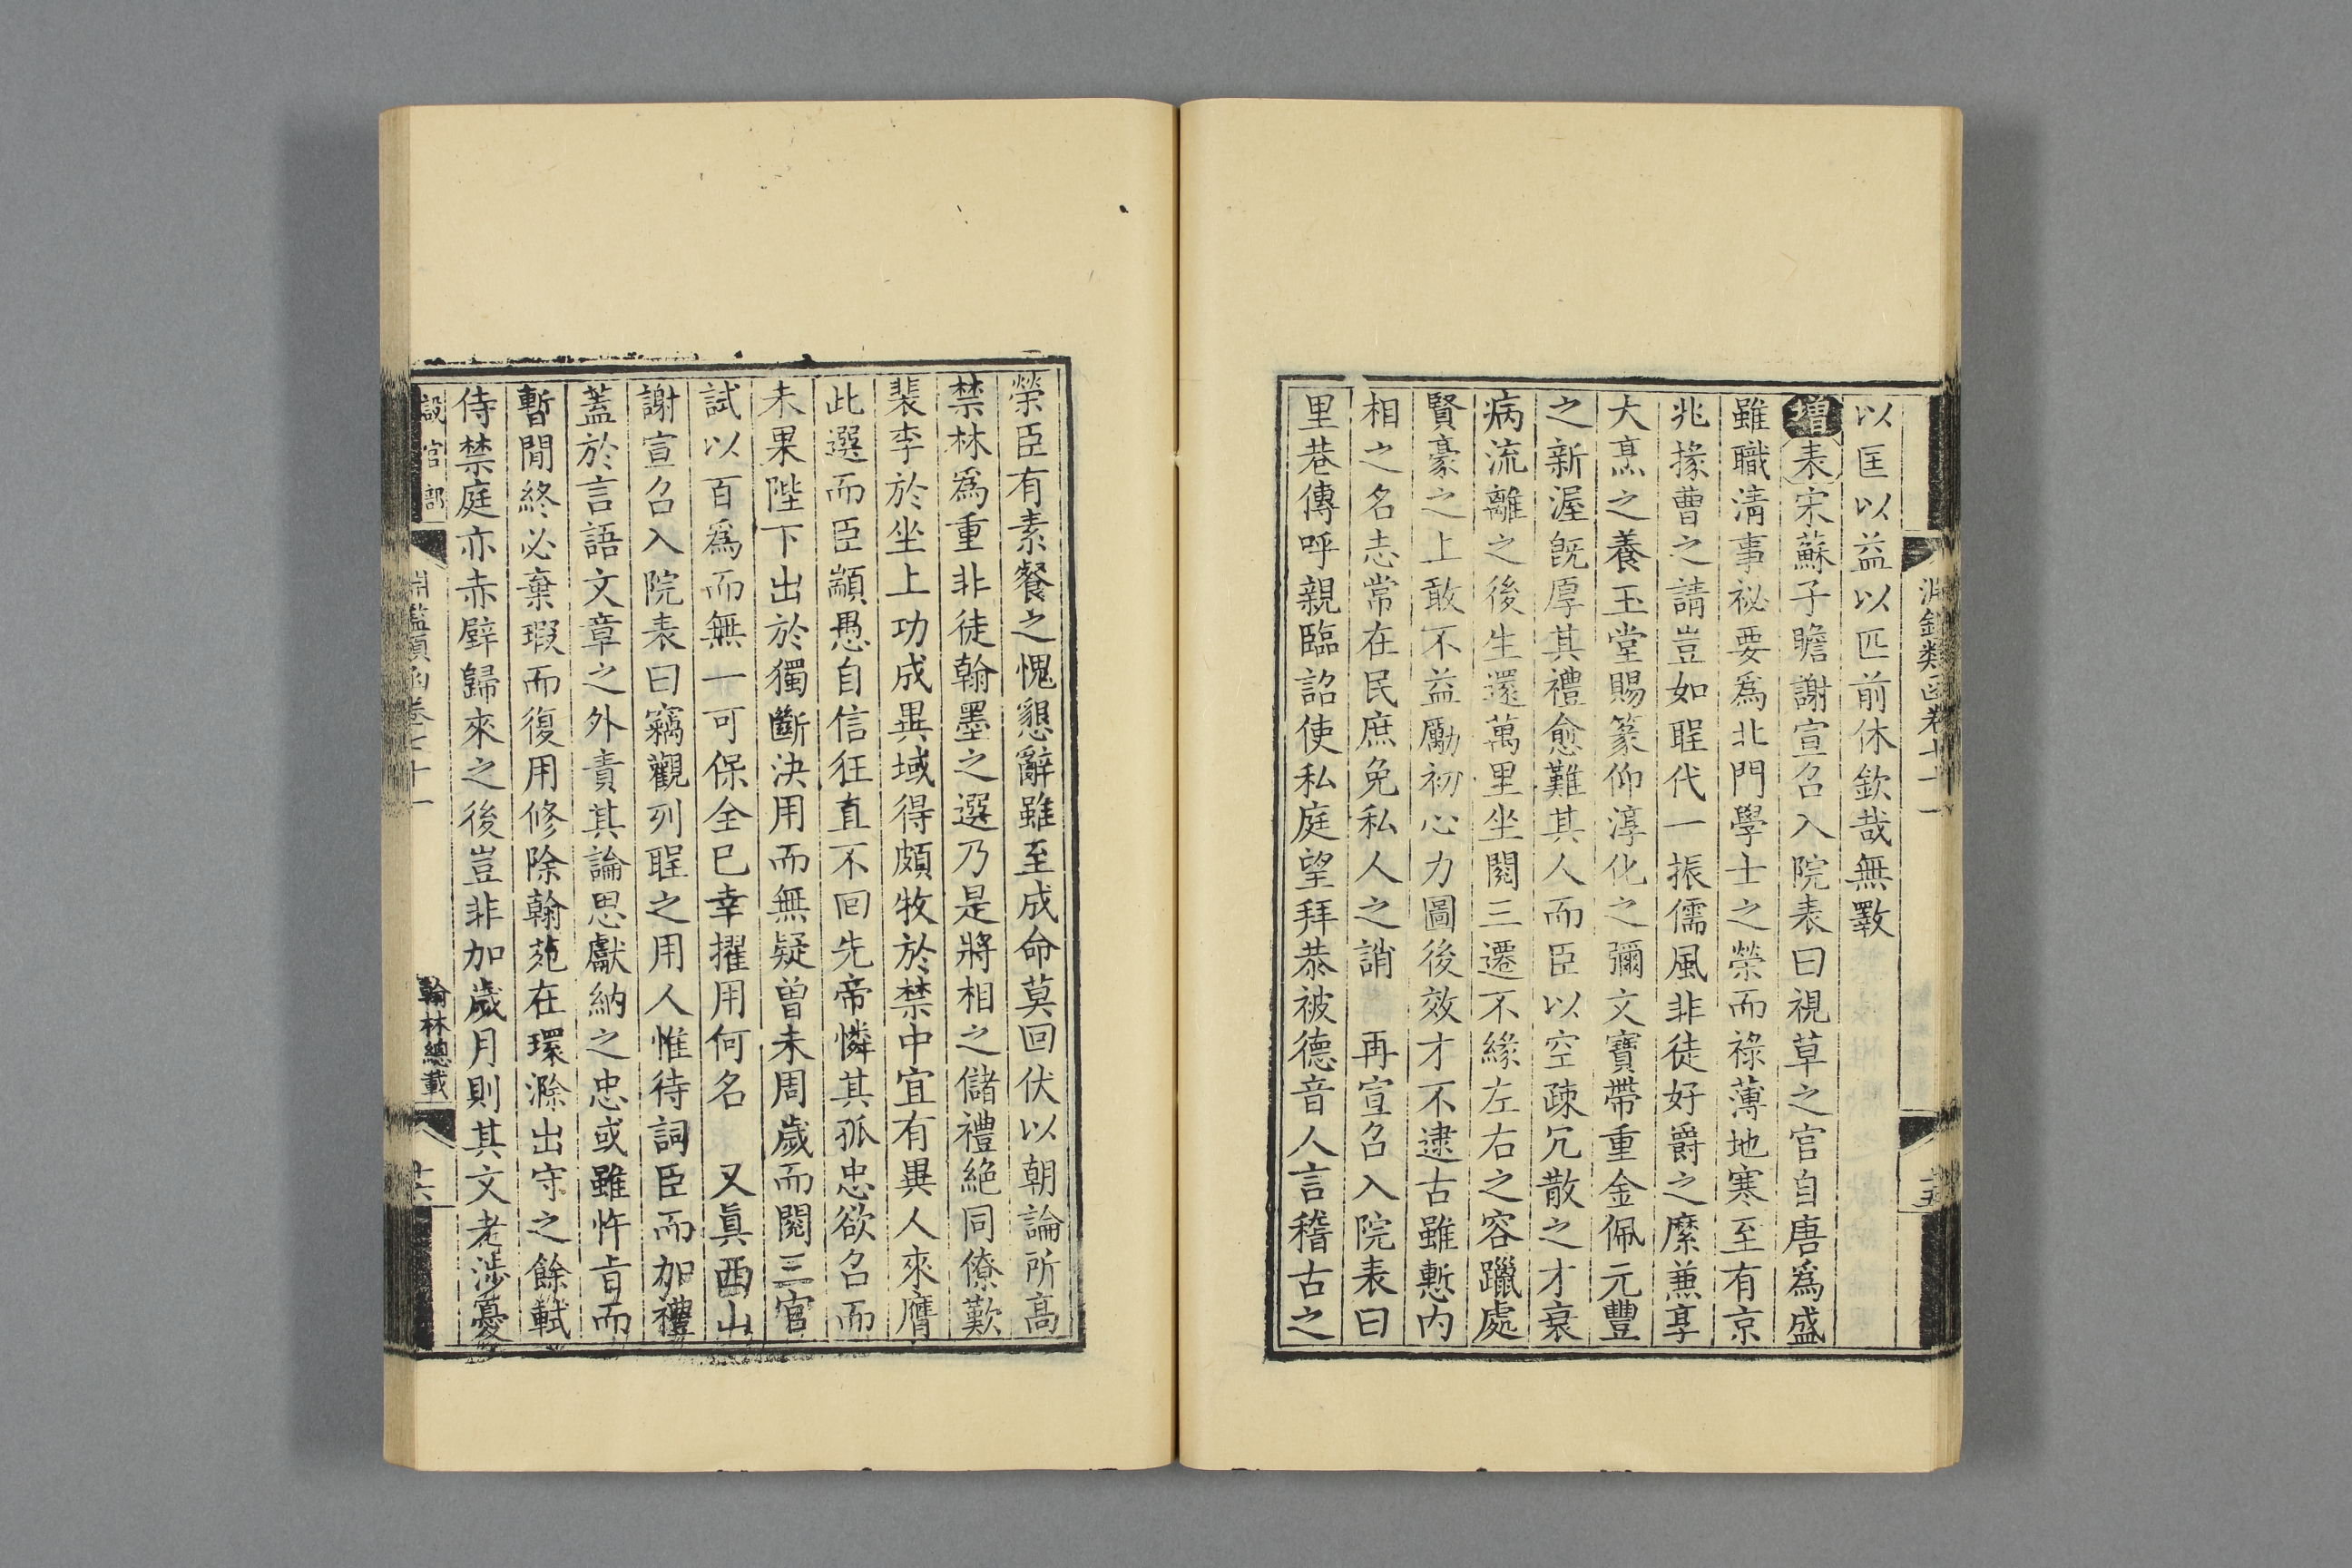 淵鑑類函卷七十一
十五
以匡以益以匹前休欽哉無斁
増表宋蘇子瞻謝宣召入院表曰視草之官自唐爲盛
雖職淸事祕要爲北門學士之榮而祿薄地寒至有京
兆掾曹之請豈如聖代一振儒風非徒好爵之縻兼享
大烹之養玉堂賜篆仰淳化之彌文寶帶重金佩元豐
之新渥旣厚其禮愈難其人而臣以空疎冗散之才衰
病流離之後生還萬里坐閱三遷不緣左右之容躐處
賢豪之上敢不益勵初心力圖後效才不逮古雖慙內
相之名志常在民庶免私人之誚　再宣召入院表曰
里巷傳呼親臨詔使私庭望拜恭被德音人言稽古之
榮臣有素餐之愧懇辭雖至成命莫回伏以朝論所高
禁林爲重非徒翰墨之選乃是將相之儲禮絕同僚歎
裴李於坐上功成異域得頗牧於禁中宜有異人來膺
此選而臣顓愚自信狂直不回先帝憐其孤忠欲召而
未果陛下出於獨斷決用而無疑曾未周歲而閱三官
試以百爲而無一可保全已幸擢用何名　又眞西山
謝宣召入院表曰竊觀列聖之用人惟待詞臣而加禮
蓋於言語文章之外責其論思獻納之忠或雖忤旨而
暫閒終必棄瑕而復用修除翰苑在環滁出守之餘軾
侍禁庭亦赤壁歸來之後豈非加歲月則其文老涉憂
設官部
淵鑑類函卷七十一
翰林總載
十六